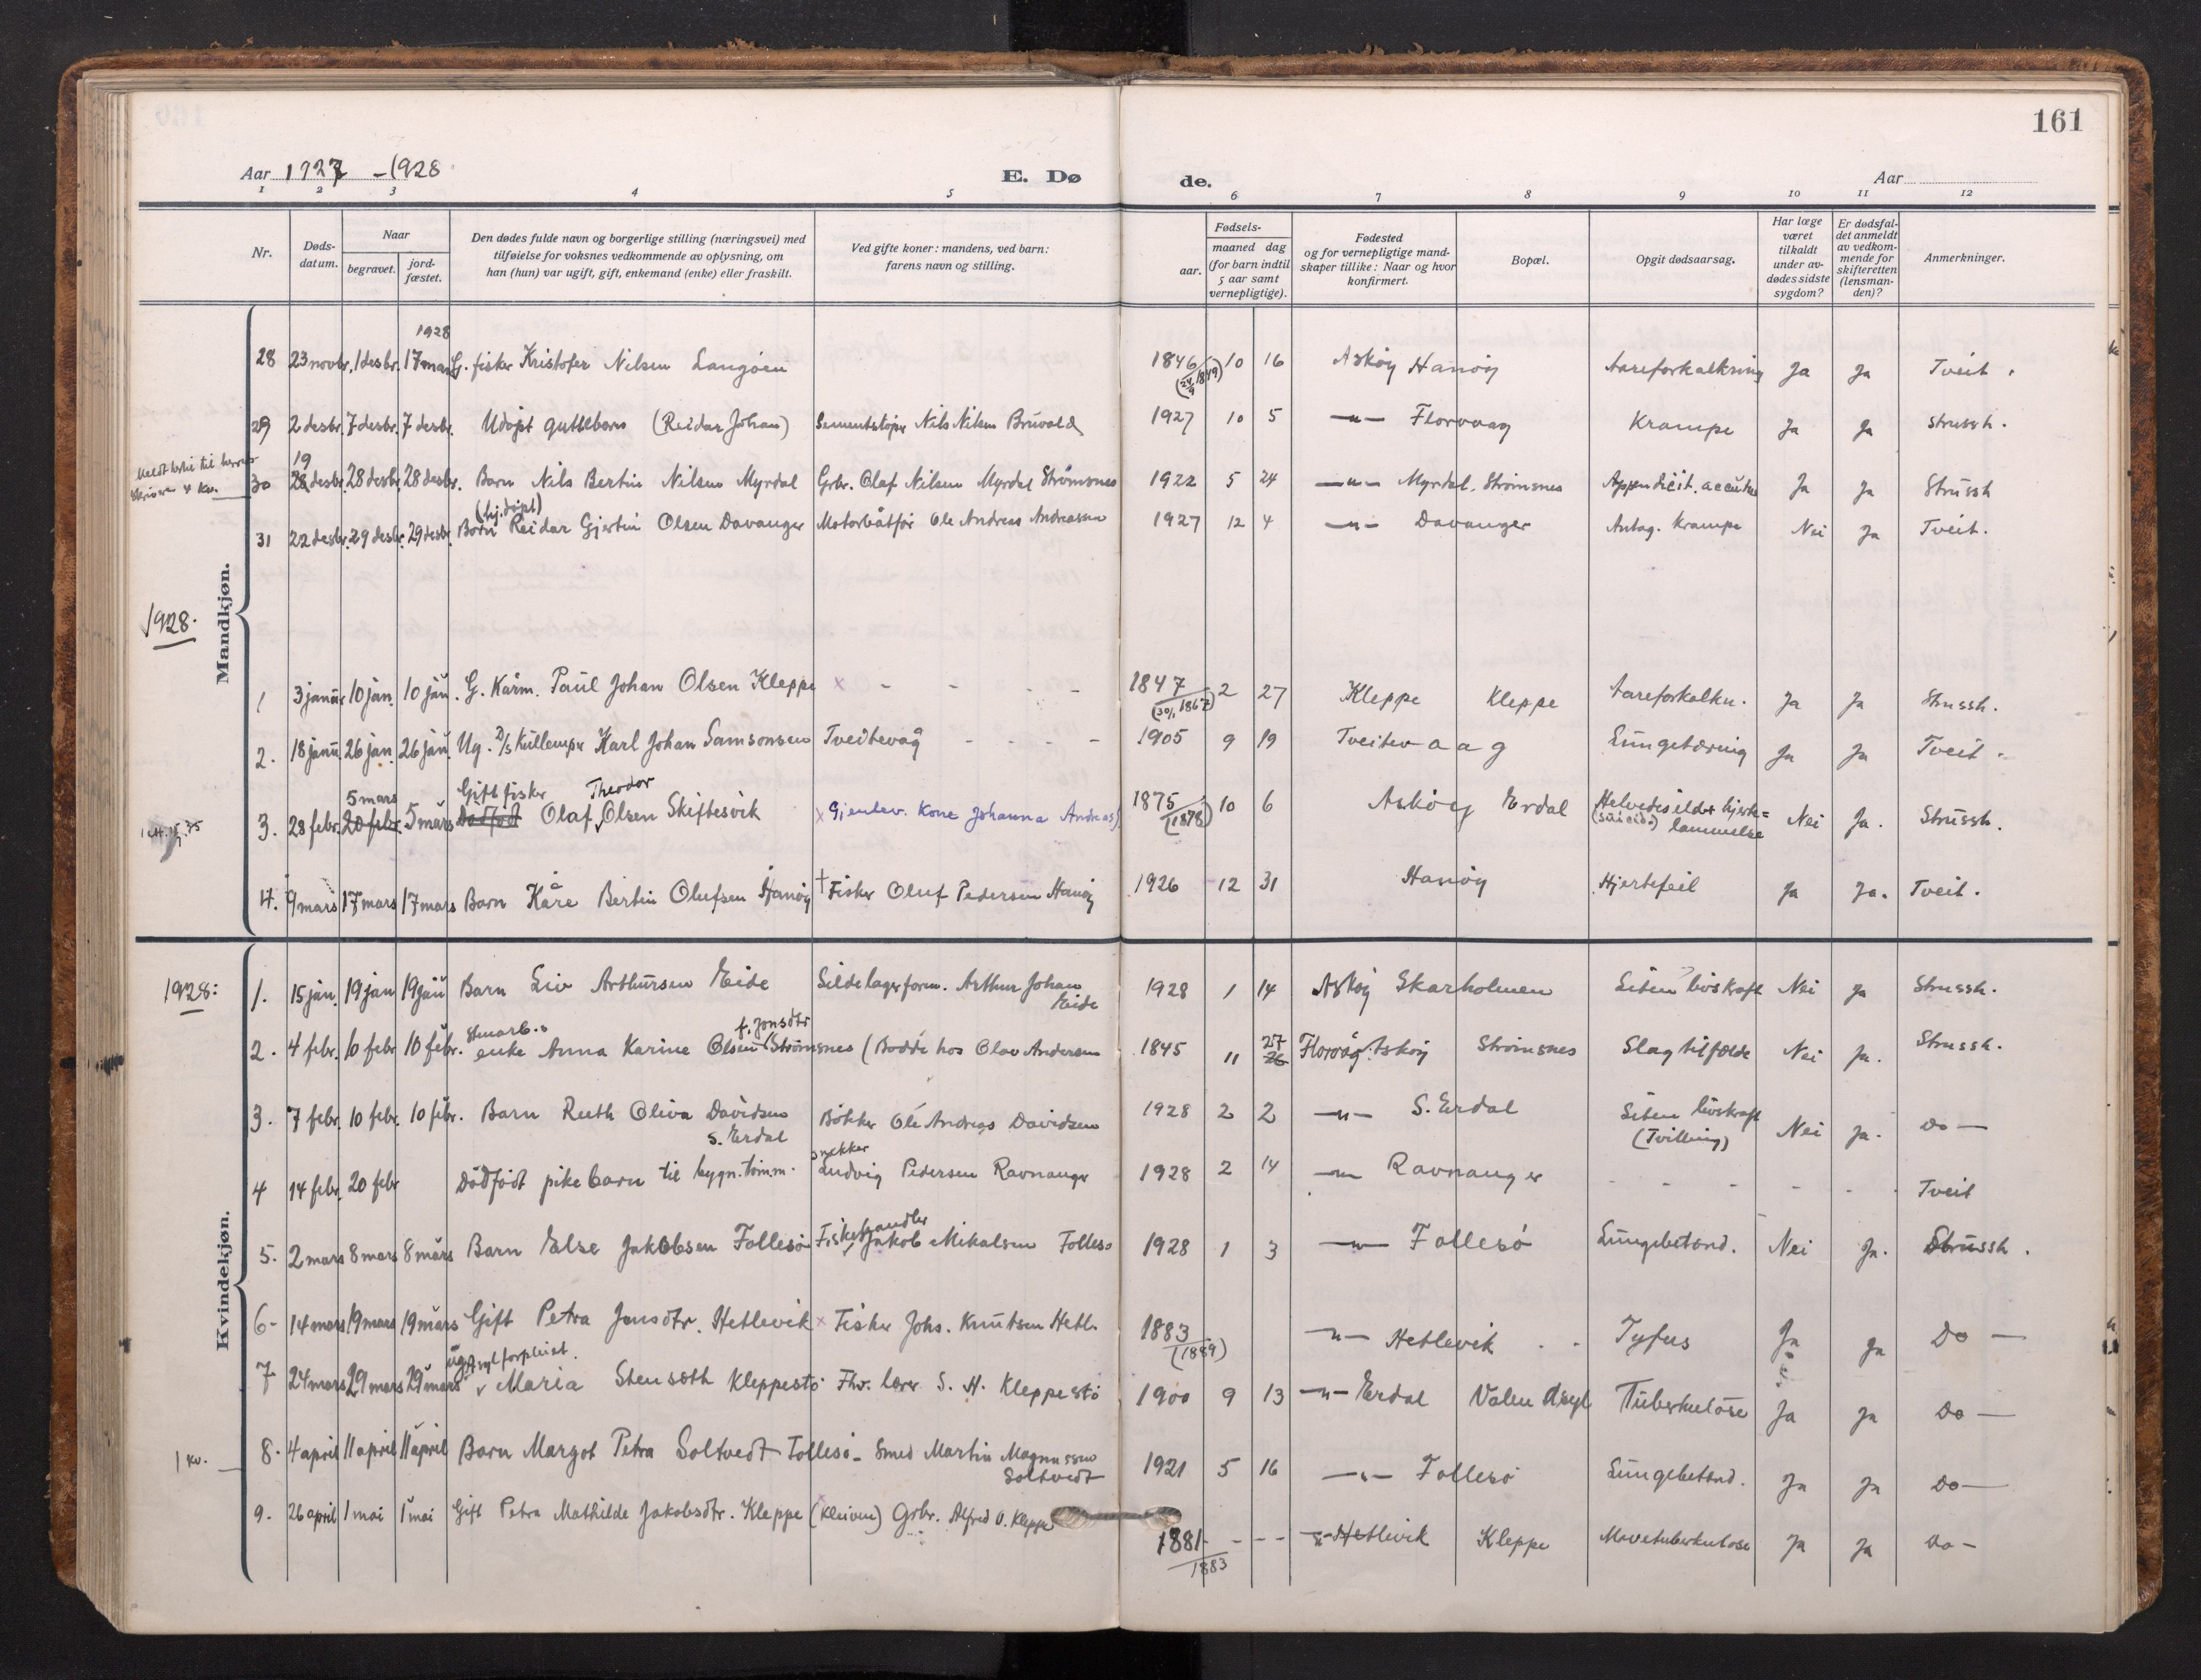 161
Aar 1927 - 1928
E. Døde.
Aar
1 2 3 4 5 6 7 8 9 10 11 12
Nr.
Døds-datum.
Naar
begravet.
jord-fæstet.
Den dødes fulde navn og borgerlige stilling (næringsvei) med
tilføielse for voksnes vedkommende av oplysning, om
han (hun) var ugift, gift, enkemand (enke) eller fraskilt.
Ved gifte koner: mandens, ved barn:
farens navn og stilling.
Fødsels-
aar.
maaned dag
(for barn indtil
5 aar samt
vernepligtige).
Fødested
og for vernepligtige mand-
skaper tillike: Naar og hvor
konfirmert.
Bopæl.
Opgit dødsaarsag.
Har læge
været
tilkaldt
under av-
dødes sidste
sygdom?
Er dødsfal-
det anmeldt
av vedkom-
mende for
skifteretten
(lensman-
den)?
Anmerkninger.
Mandkjøn.
1928
28 23 novbr. 1 desbr. 17 mars G. fisker Kristofer Nilsen Langøen 1846 10 16 Askøy Hanøy Aareforkalkning Ja Ja Tveit
29 2 desbr. 7 desbr. 7 desbr. Udøpt guttebarn (Reidar Johan) Sementstøper Nils Nilsen Bruvald 1927 10 5 -"- Florvaag Krampe Ja Ja Strussh.
19
30 28 desbr. 28 desbr. 28 desbr. Barn Nils Bertin Nilsen Myrdal Grbr. Olaf Nilsen Myrdal Strømsnes 1922 5 24 -"- Myrdal. Strømsnes Appendicit. accuta Ja Ja Strussh
(hj.døpt)
31 22 desbr. 29 desbr. 29 desbr. Barn Reidar Gjertin Olsen Davanger Motorbåtfør Ole Andreas Andreassen 1927 12 4 -"- Davanger Antag. Krampe Nei Ja Tveit.
1928.
1 3 januar 10 jan. 10 jan. G. Kårm. Paul Johan Olsen Kleppe x - - - - 1847 2 27 Kleppe Kleppe Aareforkalkn. Ja Ja Strussh.
2. 18 janu. 26 jan. 26 jan Ug. D/s Kullemper Karl Johan Samsonsen Tveitevåg - - - - 1905 9 19 Tveitevaag Lungetæring Ja Ja Tveit
Gift fisker Theodor
5 mars
3. 28 febr. 20 febr. 5 mars Dødfødt Olaf Olsen Skiftesvik x Gjenlev. Kone Johanna Andreas) 1875 (1878) 10 6 Askøy Erdal Helvedesild + hjerte=
(suicid.) lammelse Nei Ja. Strussh.
4. 9 mars 17 mars 17 mars Barn Kåre Bertin Olufsen Hanøy † Fisker Oluf Pedersen Hanøy 1926 12 31 Hanøy Hjertefeil Ja Ja. Tveit.
Kvindekjøn.
1928:
1. 15 jan. 19 jan 19 jan Barn Liv Arthursen Eide Sildelagerform. Arthur Johan
Eide 1928 1 14 Askøy Skarholmen Liten livskraft Nei Ja Strussh.
f. Jonsdtr
2. 4 febr. 10 febr 10 febr. enke Anna Karine Olsen Strømsnes (Bodde hos Olav Andersen 1845 11 27 26 Florvåg Askøy Strømsnes Slagtilfælde Nei Ja. Strussh.
3. 7 febr. 10 febr. 10 febr. Barn Ruth Oliva Davidsen
S. Erdal Bøkker Ole Andreas Davidsen 1928 2 2 -"- S. Erdal Liten livskraft
(Tvilling) Nei Ja. Do -
snekker
4 14 febr. 20 febr Dødfødt pikebarn til bygn.tømm. Ludvig Pedersen Ravnanger 1928 2 14 -"- Ravnanger - - - - - Tveit
5. 2 mars 8 mars 8 mars Barn Else Jakobsen Follesø Fiskehandler Jakob Mikalsen Follesø 1928 1 3 -"- Follesø Lungebetænd. Nei Ja. Strussh.
6- 14 mars 19 mars 19 mars Gift Petra Jensdtr. Hetlevik x Fisker Johs. Knutsen Hetl. 1883 (1889) -"- Hetlevik - - Tyfus Ja Ja Do -
ug. Asylforpleiet.
7 24 mars 29 mars 29 mars Maria Stensæth Kleppestø Fhv. lærer S. H. Kleppestø 1900 9 13 -"- Erdal Valen Asyl Tuberkulose Ja Ja Do -
1 kv.
8. 4 april 11 april 11 april Barn Margot Petra Soltvedt Follesø - Smed Martin Magnussen
Soltvedt 1921 5 16 -"- Follesø Lungebetænd. Ja Ja Do -
9. 26 april 1 mai 1 mai Gift Petra Mathilde Jakobsdtr. Kleppe (Kleiven) Grbr. Alfred O. Kleppe 1881 1883 - - - -"- Hetlevik Kleppe Mavetuberkulose Ja Ja Do -